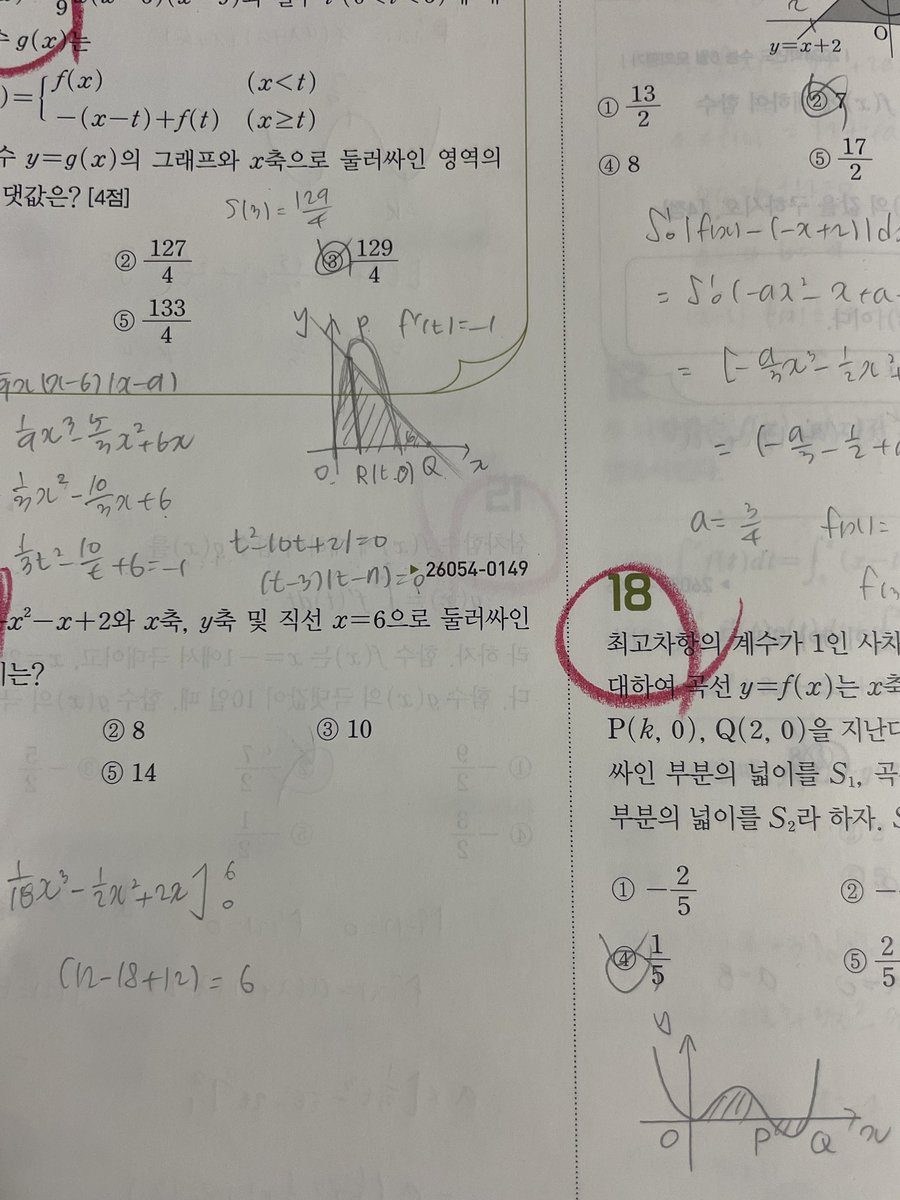 수 g(x)는
f(x) (x<t)
-(x-t)+f(t) (x≥t)
수 y=g(x)의 그래프와 x축으로 둘러싸인 영역의
댓값은? [4점]
S(3) = 129/4
② 127/4 ③ 129/4
⑤ 133/4
y P f'(t)=-1
O R(t, 0) Q x
1/9x³-5/3x²+6x
1/3x²-10/3x+6
t²-10t+21=0
▶26054-0149
x²-x+2와 x축, y축 및 직선 x=6으로 둘러싸인
이는?
② 8 ③ 10
⑤ 14
1/18x³-1/2x²+2x]⁶₀
(12-18+12)=6
y=x+2
O
① 13/2 ② 7
④ 8 ⑤ 17/2
∫₀¹|f(x)-(-x+2)|d
=∫₀¹(-ax²-x+a
=[-a/3x³-1/2x²+
=(-a/3-1/2+
a=3/4 f(x)=
18
최고차항의 계수가 1인 사차
대하여 곡선 y=f(x)는 x축
P(k, 0), Q(2, 0)을 지난다
싸인 부분의 넓이를 S₁, 곡
부분의 넓이를 S₂라 하자.
① -2/5 ② -
④ 1/5 ⑤ 2/5
y
O P Q x